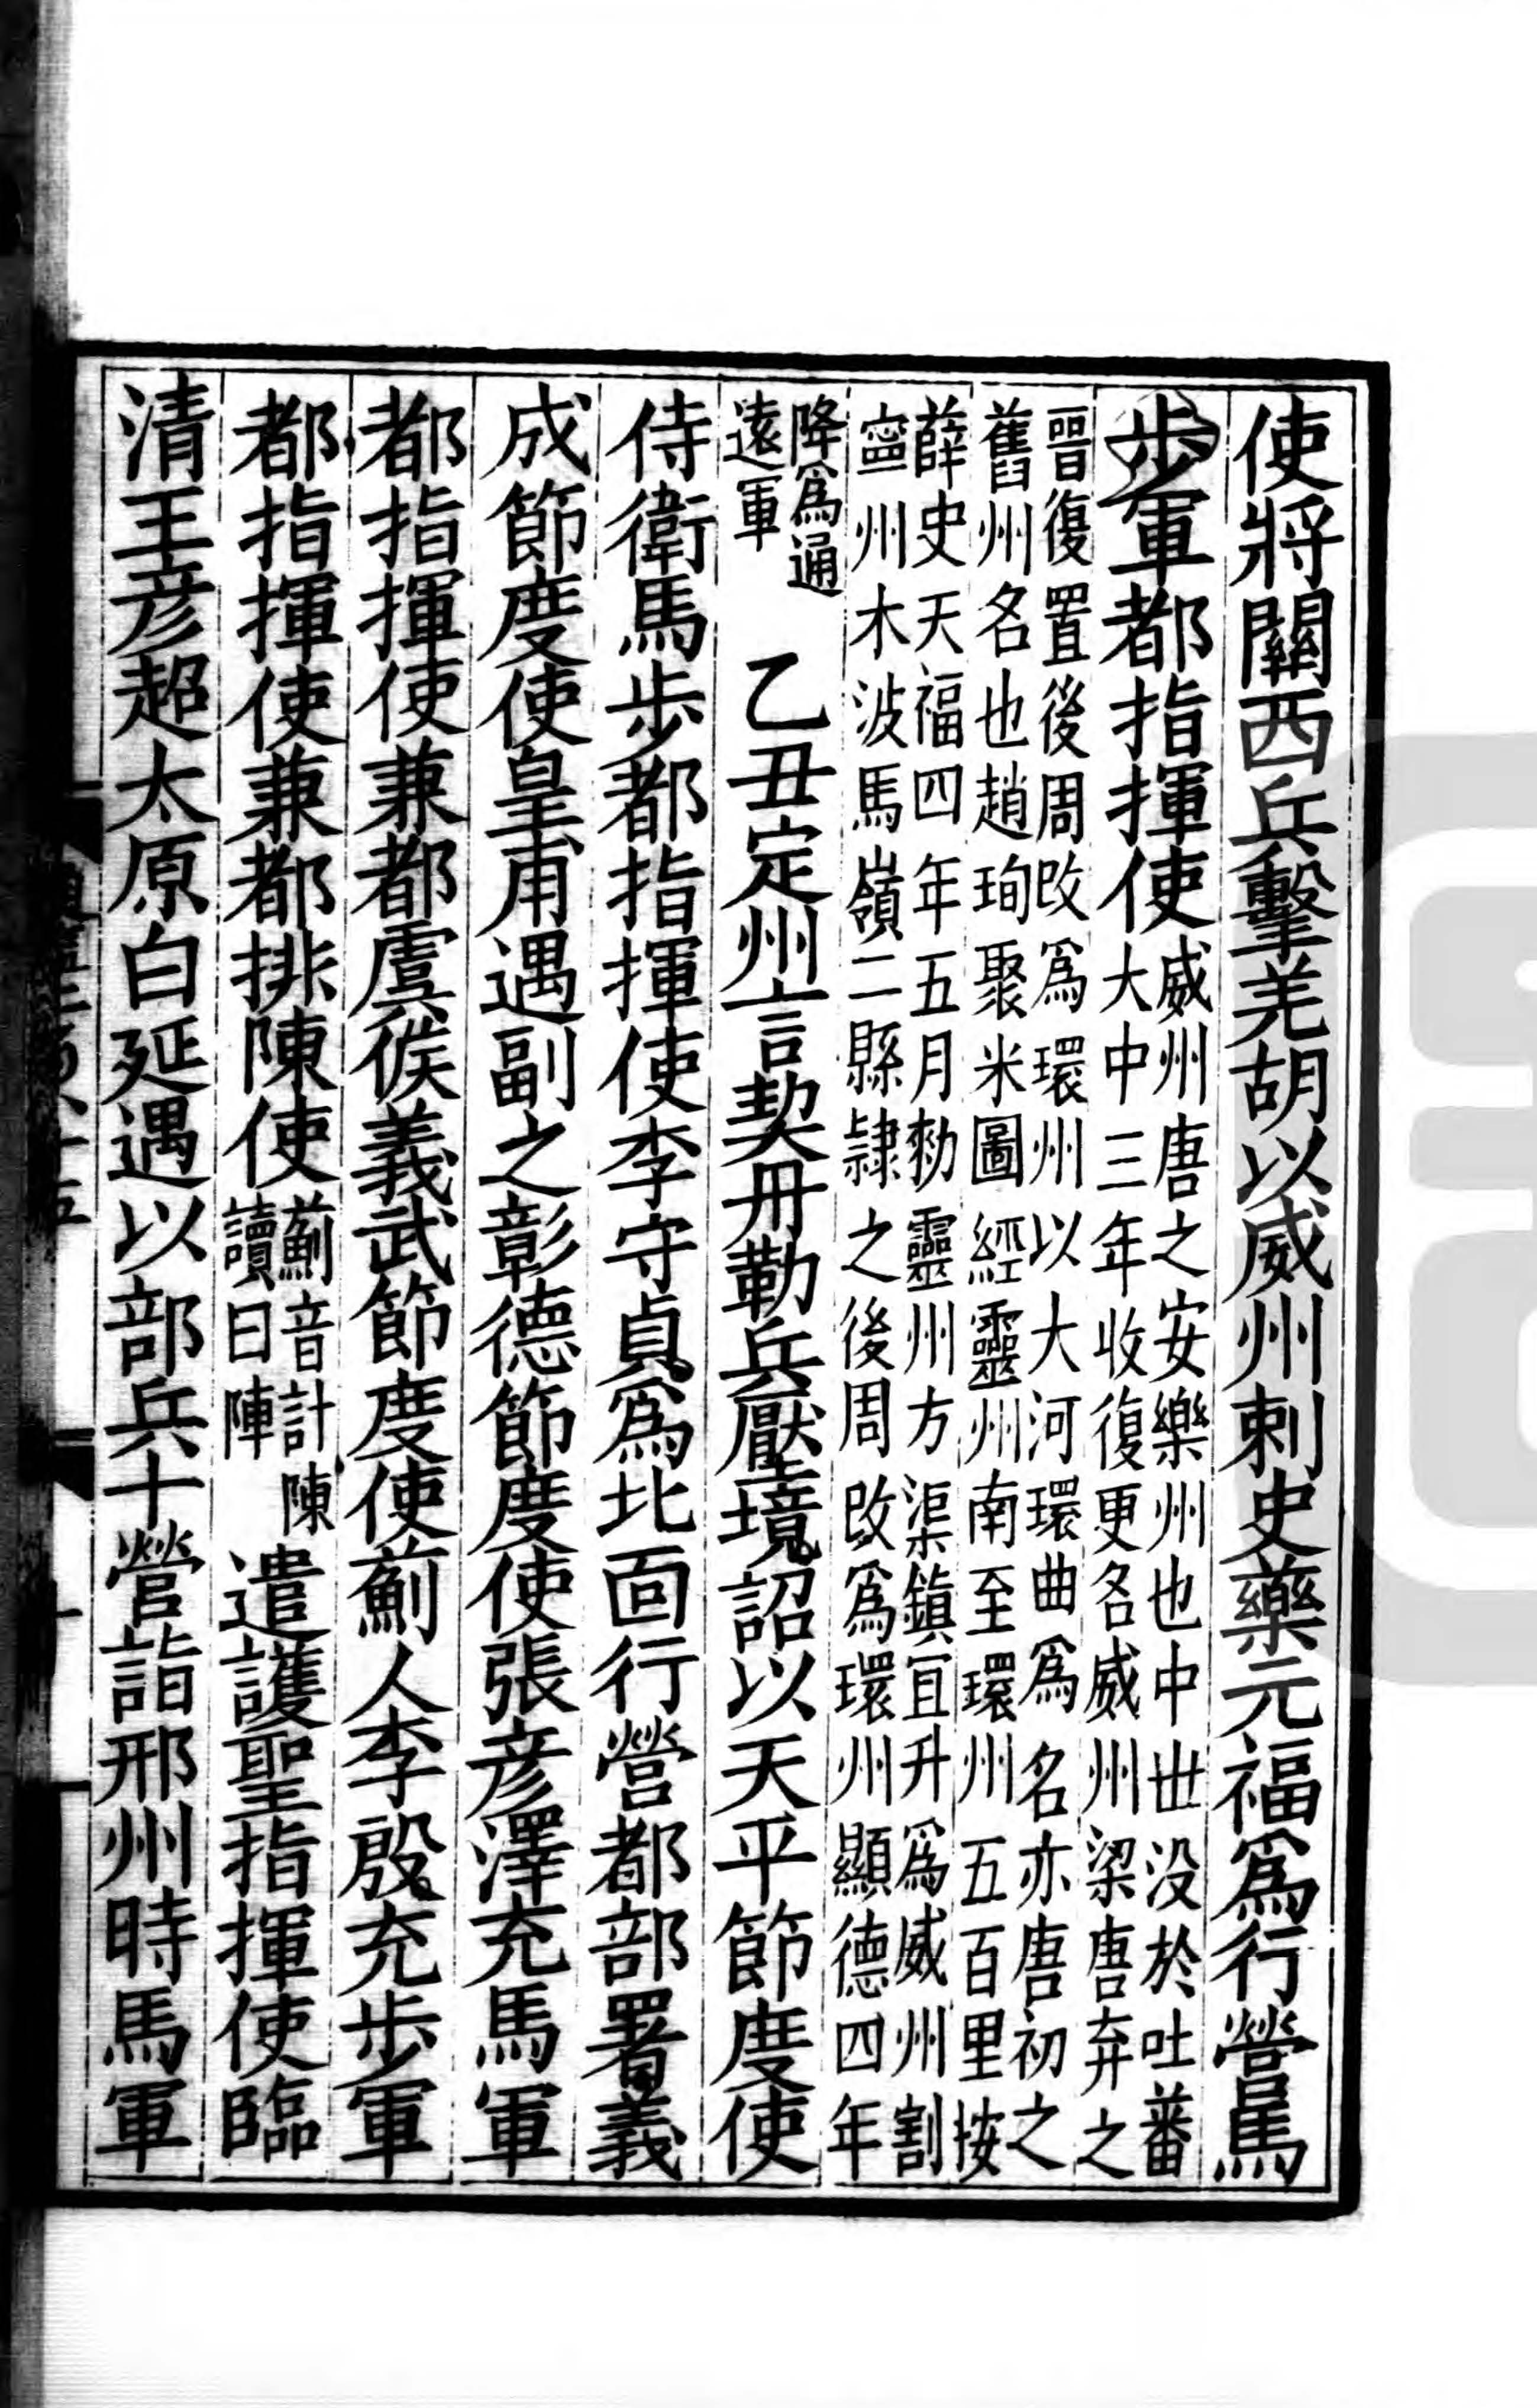 使將關西兵擊羌胡以威州刺史藥元福爲行營馬
步軍都指揮使威州唐之安樂州也中世没於吐蕃
大中三年收復更名威州梁唐弃之
晉復置後周改爲環州以大河環曲爲名亦唐初之
舊州名也趙珣聚米圖經靈州南至環州五百里按
薛史天福四年五月勑靈州方渠鎮宜升爲威州割
寧州木波馬嶺二縣隷之後周改爲環州顯德四年
降爲通
遠軍
乙丑定州言契丹勒兵壓境詔以天平節度使
侍衛馬步都指揮使李守貞爲北面行營都部署義
成節度使皇甫遇副之彰德節度使張彦澤充馬軍
都指揮使兼都虞候義武節度使薊人李殷充步軍
都指揮使兼都排陳使薊音計陳
讀曰陣
遣護聖指揮使臨
清王彦超太原白延遇以部兵十營詣邢州時馬軍